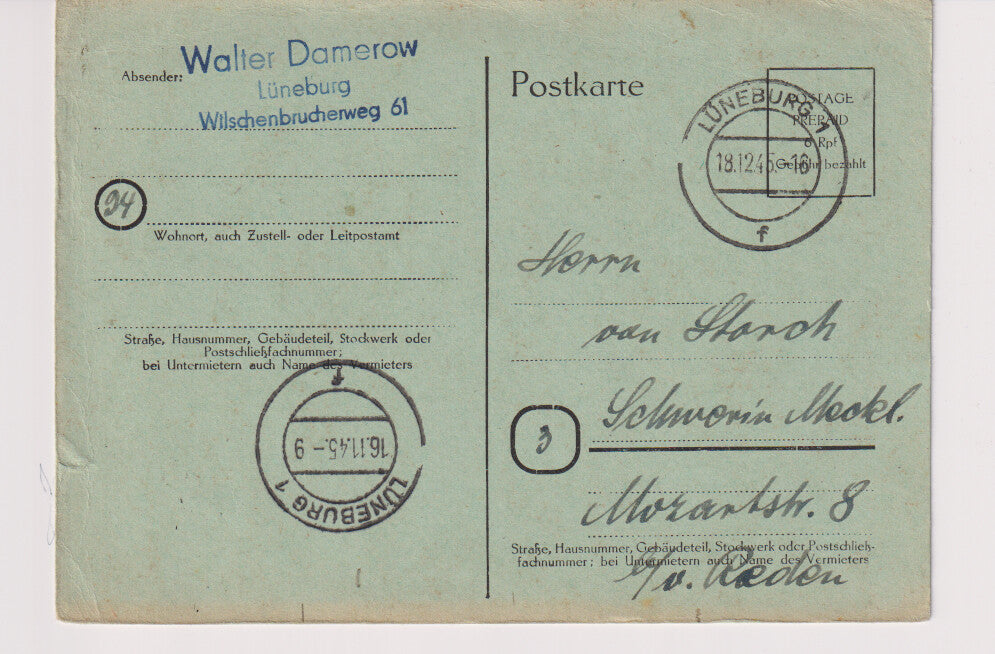 Absender:
Walter Damerow
Lüneburg
Wilschenbrucherweg 61
24
Wohnort, auch Zustell- oder Leitpostamt
Straße, Hausnummer, Gebäudeteil, Stockwerk oder
Postschließfachnummer;
bei Untermietern auch Name des Vermieters
f
16.11.45.-9
LÜNEBURG 1
Postkarte
POSTAGE
PREPAID
6 Rpf
Gebühr bezahlt
LÜNEBURG 1
18.12.45.-16
f
Herrn
von Storch
3
Schwerin Meckl.
Mozartstr. 8
Straße, Hausnummer, Gebäudeteil, Stockwerk oder Postschließ-
fachnummer; bei Untermietern auch Name des Vermieters
b/v. Reden